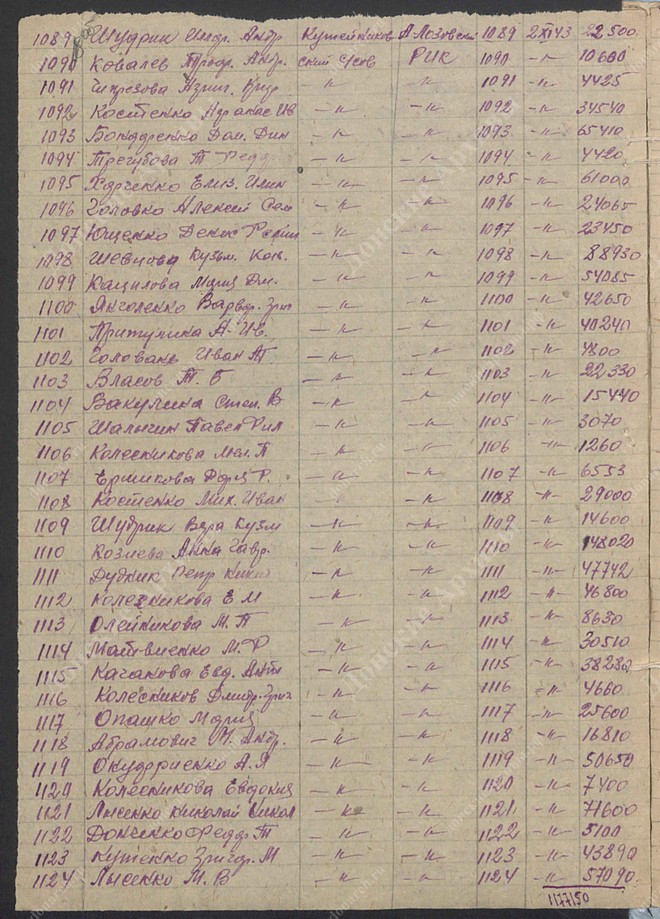 1089 Шудрик Федр. Андр Кутейников А Лозовски 1089 2 XI 43 22500
1090 Ковалев Трофр. Андр. ский с/сов РИК 1090 -"- 10600
1091 Григ -"- -"- 1091 -"- 4425
1092 Костенко Ив -"- -"- 1092 -"- 34540
1093 Бондаренко Дан. -"- -"- 1093 -"- 65410
1094 Трегубова Т Федр -"- -"- 1094 -"- 4420
1095 Харченко Елиз. Илин -"- -"- 1095 -"- 61000
1096 Головко Алексей Сем -"- -"- 1096 -"- 24065
1097 Ющенко Денис -"- -"- 1097 -"- 23450
1098 Шевцова Кузьм. Кон. -"- -"- 1098 -"- 88930
1099 Кацилова Мария Дм. -"- -"- 1099 -"- 54085
1100 Янголенко Варвар. Григ -"- -"- 1100 -"- 42650
1101 Притулина А. Ив. -"- -"- 1101 -"- 40240
1102 Головань Иван Т. -"- -"- 1102 -"- 4800
1103 Власов Т. Б -"- -"- 1103 -"- 22330
1104 Вакулина Степ. В -"- -"- 1104 -"- 15440
1105 Шалыгин Павел Фил -"- -"- 1105 -"- 3070
1106 Колесникова Мел. П -"- -"- 1106 -"- 1260
1107 Ермикова Дарья Р. -"- -"- 1107 -"- 6553
1108 Костенко Мих. Иван -"- -"- 1108 -"- 29000
1109 Шудрик Вера Кузм -"- -"- 1109 -"- 14600
1110 Козиева Анна Гавр. -"- -"- 1110 -"- 148020
1111 Дудник Петр Никит -"- -"- 1111 -"- 47742
1112 Колезникова Е М -"- -"- 1112 -"- 46800
1113 Олейникова М. П -"- -"- 1113 -"- 8630
1114 Матвиенко М. Ф -"- -"- 1114 -"- 30510
1115 Качакова Евд. Ант -"- -"- 1115 -"-
1116 Колесников Дмитр. Григ -"- -"- 1116 -"- 4660
1117 Опашко Мария -"- -"- 1117 -"- 25600
1118 Абрамович М. Андр. -"- -"- 1118 -"- 16810
1119 А. Я -"- -"- 1119 -"- 50650
1120 Колесникова Евдокия -"- -"- 1120 -"- 7400
1121 Лысенко Николай Никол -"- -"- 1121 -"- 71600
1122 Донченко Федр. Т -"- -"- 1122 -"- 5100
1123 Кутенко Григор. М -"- -"- 1123 -"- 43890
1124 Лысенко М. В -"- -"- 1124 -"- 57090
1177150